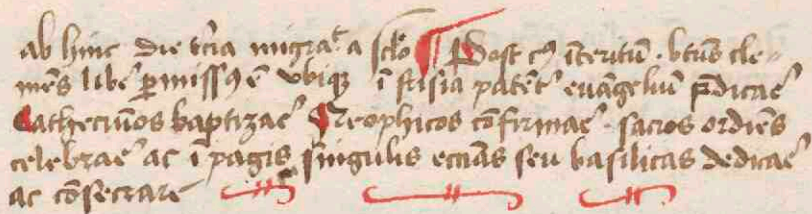 ab hinc die tʳcia migrat᷑ a sclo ¶ Post cꝰ īteritū · btūs cle-
mēs libe᷑ ꝑmissꝰ ē vbiqꝫ ī frisia patēt᷑ euāgeliū p̄dicar᷑
Cathecinos baptizar᷑ Neophitos cōfirmar᷑ · sacros ordīes
celebrar᷑ ac ī pagis singulis eccīas seu basilicas dedicar᷑
ac cōsecrare